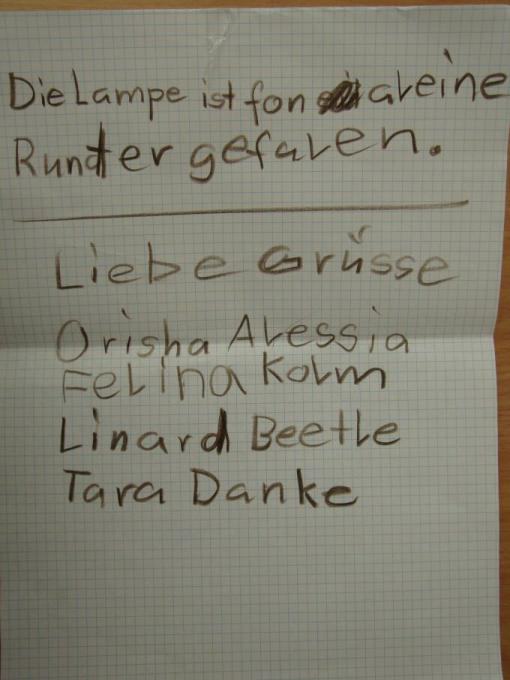 Die Lampe ist fon aleine
Runter gefalen.
Liebe Grüsse
Orisha Alessia
Felina Kolm
Linard Beetle
Tara Danke